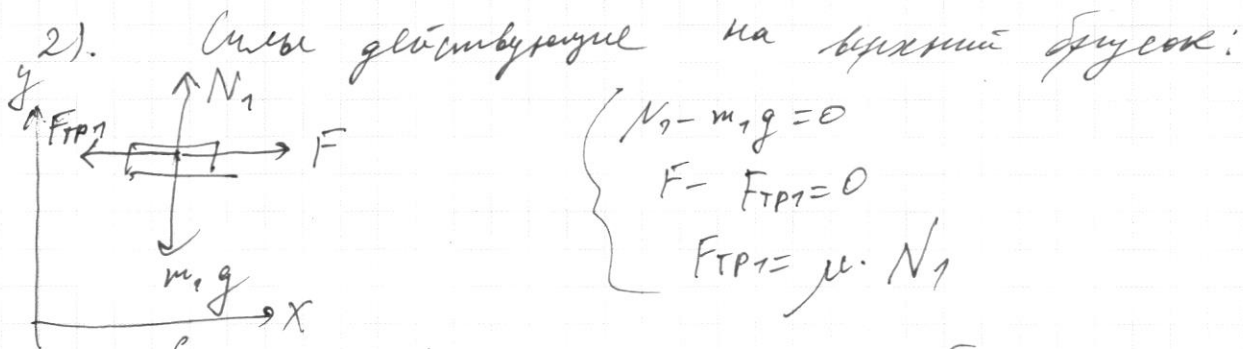 2). Силы действующие на верхний брусок:
y
N₁
Fтр1
F
m₁g
X
N₁ - m₁g = 0
F - Fтр1 = 0
Fтр1 = μ · N₁